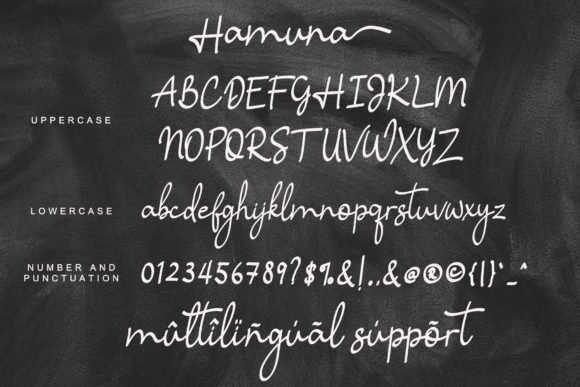 Hamuna
UPPERCASE
ABCDEFGHIJKLM
NOPQRSTUVWXYZ
LOWERCASE
abcdefghijklmnopqrstuvwxyz
NUMBER AND
PUNCTUATION
0123456789?$%&!..&@®©{|}`_^
mûltîlïñgúãl súppõrt